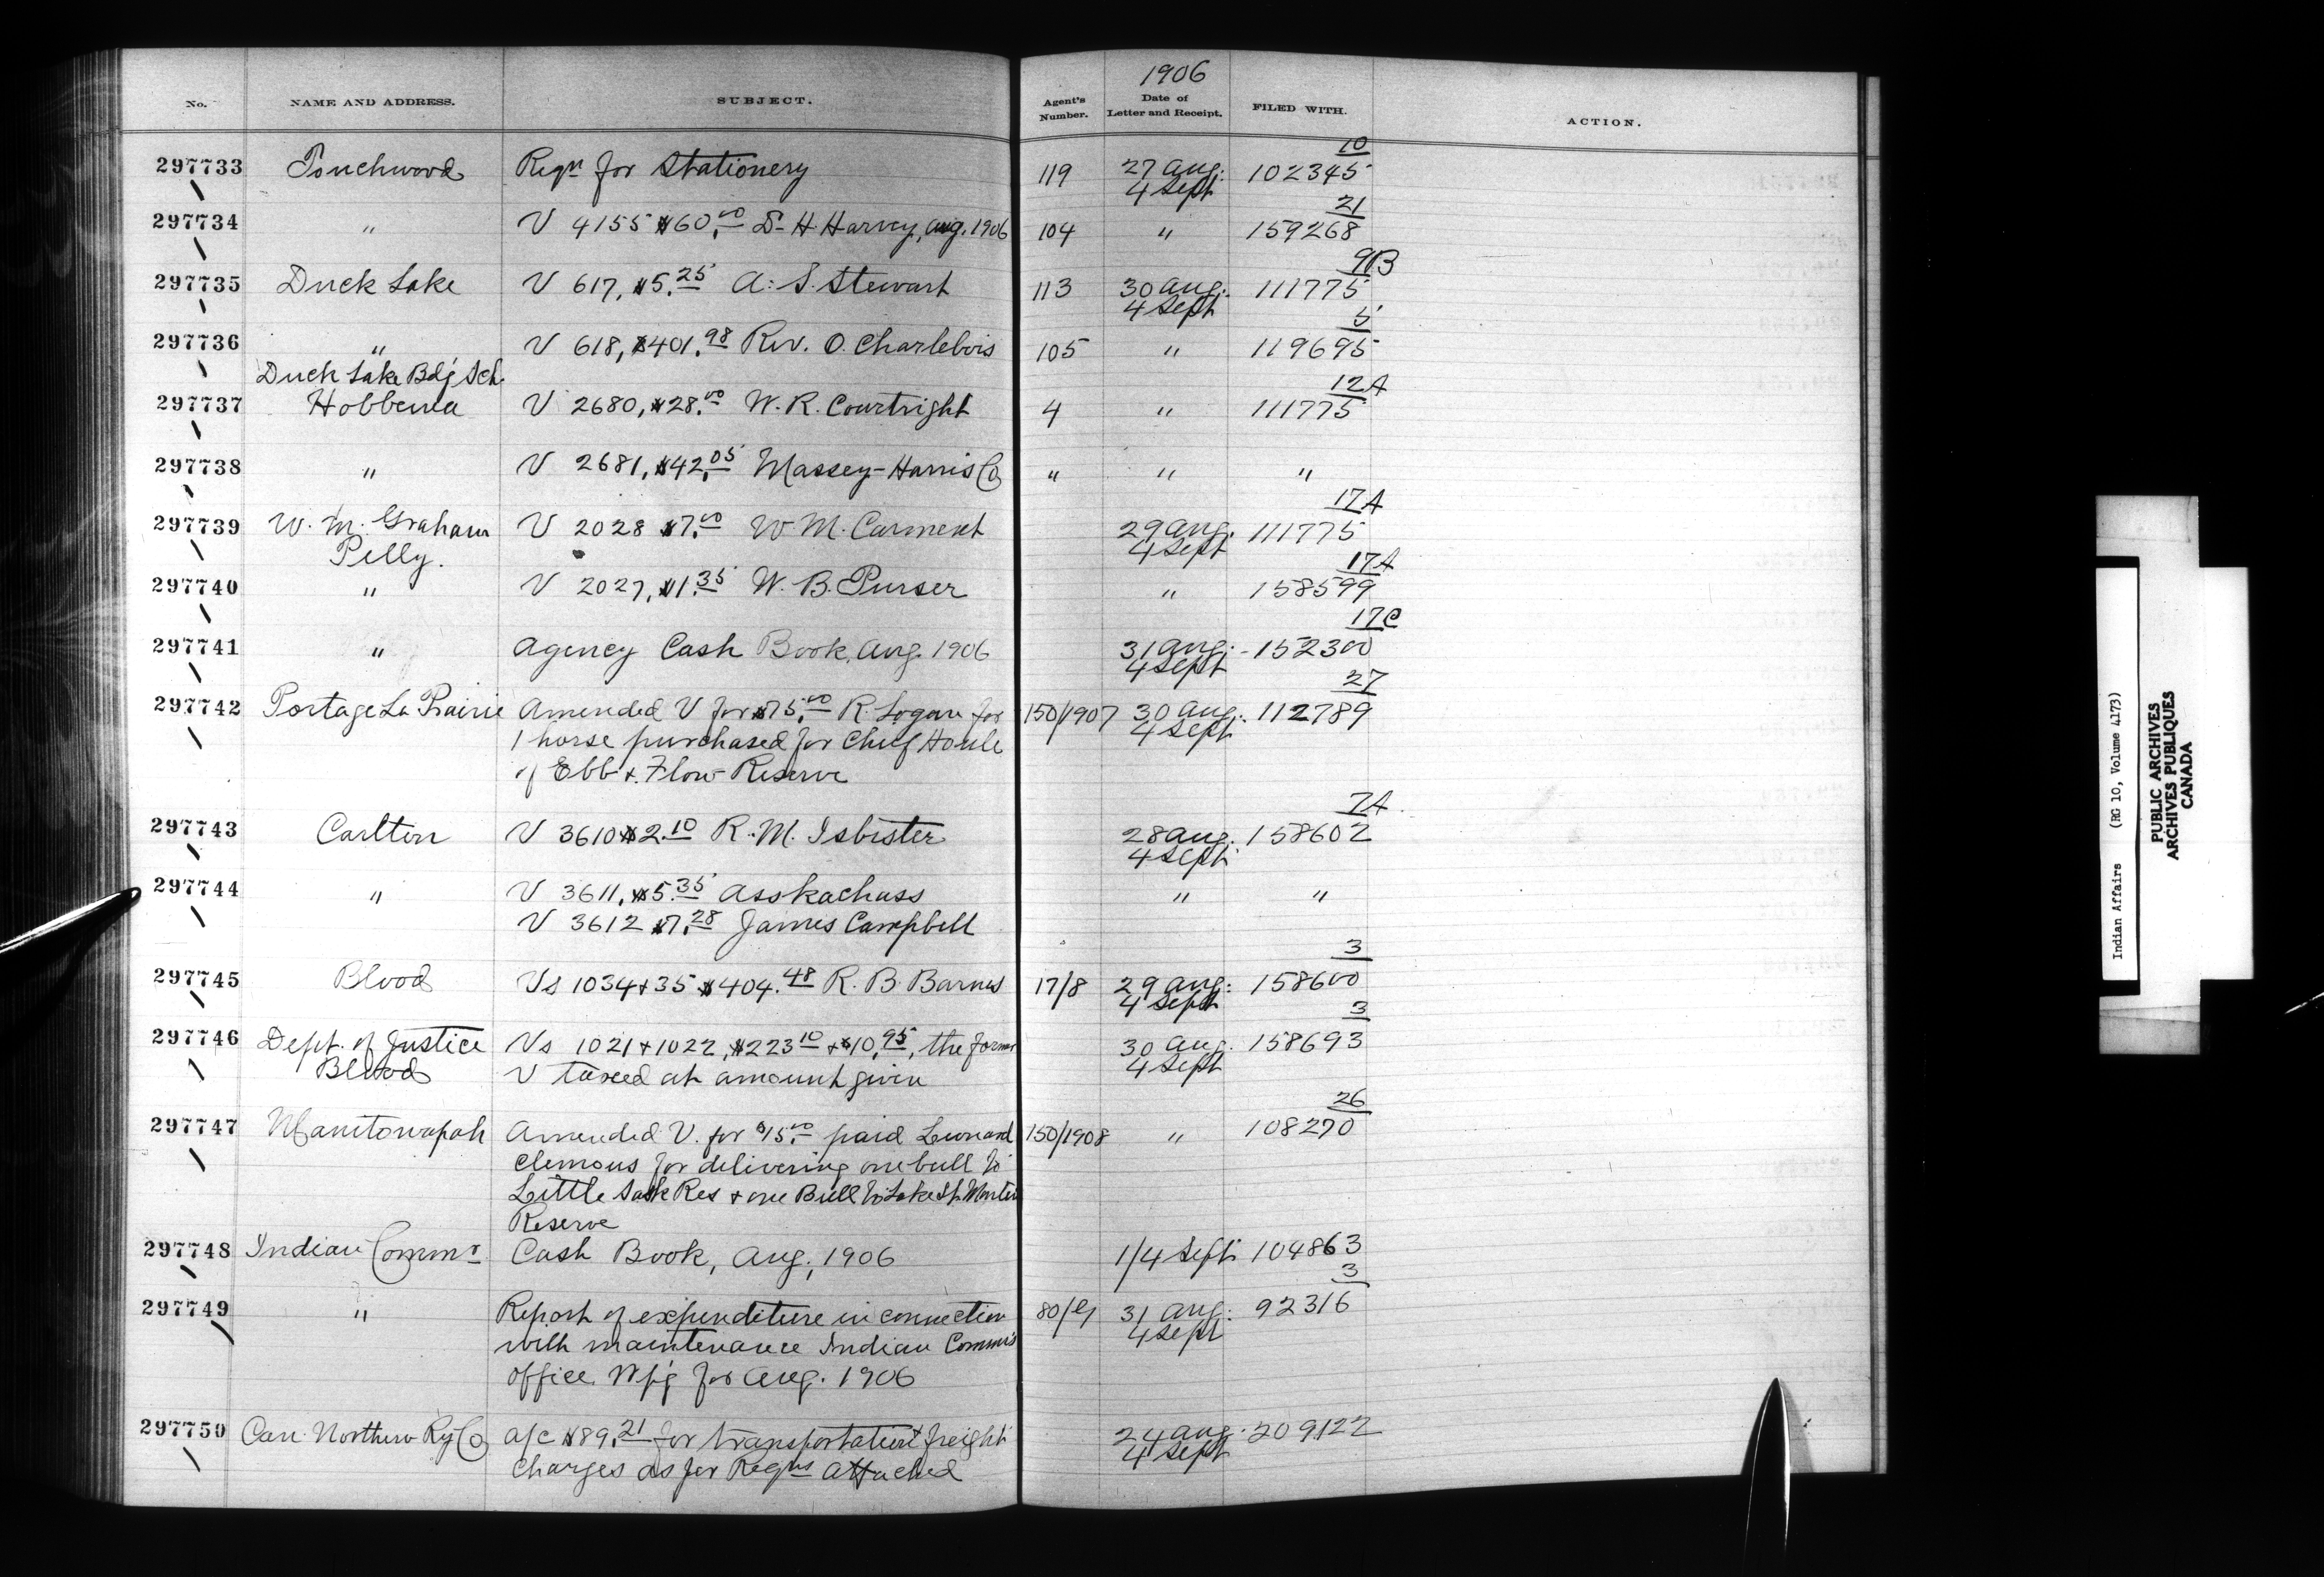 1906
No. NAME AND ADDRESS. SUBJECT. Agent's Number. Date of Letter and Receipt. FILED WITH. ACTION.
10
297733 Touchwood Reqn for Stationery 119 27 Aug. 102345
4 Sept
21
297734 " V 4155 $60.00 Dr H. Harvey, Aug. 1906 104 " 159268
9B
297735 Duck Lake V 617, $5.25 A. S. Stewart 113 30 Aug. 111775
4 Sept
5
297736 " V 618, $401.98 Rev. O. Charlebois 105 " 119695
Duck Lake Bdg Sch.
12A
297737 Hobbema V 2680, $28.00 W. R. Courtright 4 " 111775
297738 " V 2681, $42.05 Massey-Harris Co " " "
17A
297739 W. M. Graham V 2028 $7.00 W. M. Carment 29 Aug. 111775
Pelly. 4 Sept
17A
297740 " V 2027, $1.35 W. B. Purser " 158599
17C
297741 " Agency Cash Book, Aug. 1906 31 Aug. 152300
4 Sept
27
297742 Portage La Prairie Amended V for $75.00 R. Logan for 150/1907 30 Aug. 112789
1 horse purchased for Chief Houle 4 Sept
of Ebb & Flow Reserve
7A
297743 Carlton V 3610 $2.10 R. M. Isbister 28 Aug. 158602
4 Sept
297744 " V 3611, $5.35 Asskachuss " "
V 3612 $7.28 James Campbell
3
297745 Blood Vs 1034 & 35 $404.48 R. B. Barnes 17/8 29 Aug. 158600
4 Sept
3
297746 Dept. of Justice Vs 1021 & 1022, $223.10 & $10.95, the former 30 Aug. 158693
Blood V taxed at amount given 4 Sept
26
297747 Manitowapah Amended V. for $15.00 paid Leonard 150/1908 " 108270
Clemons for delivering one bull to
Little Sask Res & one Bull to Lake St. Martin
Reserve
297748 Indian Commr Cash Book, Aug, 1906 1/4 Sept 104863
3
297749 " Report of expenditure in connection 31 Aug. 92316
with maintenance Indian Commrs 4 Sept
office Wpg for Aug. 1906
297750 Can. Northern Ry Co a/c $89.21 for transportation & freight 24 Aug. 209122
charges as per Reqns attached 4 Sept
Indian Affairs (RG 10, Volume 4173)
PUBLIC ARCHIVES
ARCHIVES PUBLIQUES
CANADA